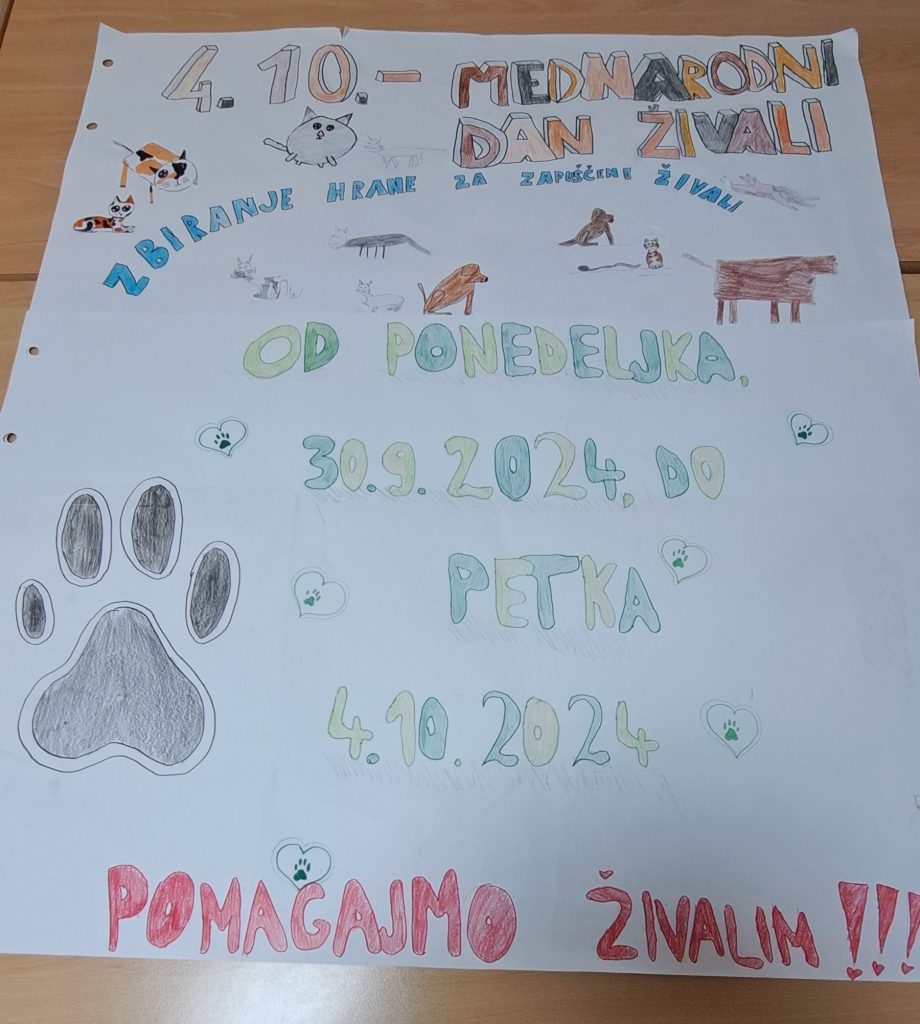 4.10. - MEDNARODNI
DAN ŽIVALI
ZBIRANJE HRANE ZA ZAPUŠČENE ŽIVALI
OD PONEDELJKA,
30.9.2024, DO
PETKA
4.10.2024
POMAGAJMO ŽIVALIM !!!